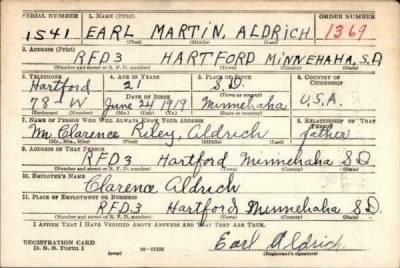 SERIAL NUMBER 1. NAME (Print) ORDER NUMBER
1541 EARL MARTIN, ALDRICH 1369
(First) (Middle) (Last)
2. ADDRESS (Print)
RFD3 HARTFORD MINNEHAHA, S.D.
(Number and street or R. F. D. number) (Town) (County) (State)
3. TELEPHONE 4. AGE IN YEARS 5. PLACE OF BIRTH 6. COUNTRY OF CITIZENSHIP
Hartford 21 S.D.
DATE OF BIRTH (Town or county)
78-W June 24 1919 Minnehaha U.S.A.
(Exchange) (Number) (Mo.) (Day) (Yr.) (State or country)
7. NAME OF PERSON WHO WILL ALWAYS KNOW YOUR ADDRESS 8. RELATIONSHIP OF THAT PERSON
Mr. Clarence Riley, Aldrich father
(Mr., Mrs., Miss) (First) (Middle) (Last)
9. ADDRESS OF THAT PERSON
RFD3 Hartford Minnehaha S.D.
(Number and street or R. F. D. number) (Town) (County) (State)
10. EMPLOYER'S NAME
Clarence Aldrich
11. PLACE OF EMPLOYMENT OR BUSINESS
RFD3 Hartford Minnehaha S.D.
(Number and street or R. F. D. number) (Town) (County) (State)
I AFFIRM THAT I HAVE VERIFIED ABOVE ANSWERS AND THAT THEY ARE TRUE.
REGISTRATION CARD
D. S. S. Form 1 (over) 16-17105 Earl Aldrich
(Registrant's signature)